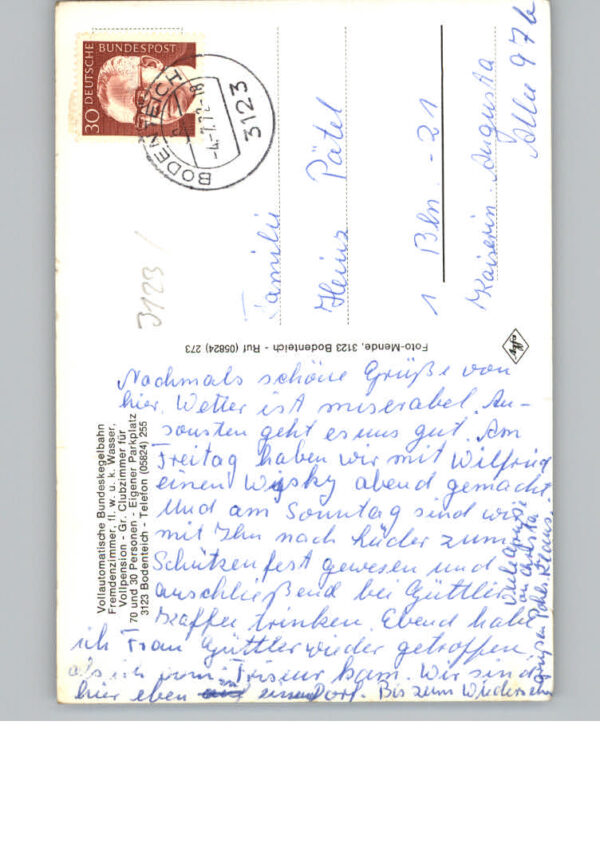 DEUTSCHE
BUNDESPOST
30
BODENTEICH
-4.-7.72-18
3123
3123 /
Familie
Heinz Pätel
1 Bln. -21
Kaiserin Augusta
Allee 97b
Foto-Mende, 3123 Bodenteich - Ruf (05824) 273
Vollautomatische Bundeskegelbahn
Fremdenzimmer, fl. w. u. k. Wasser,
Vollpension - Gr. Clubzimmer für
70 und 30 Personen - Eigener Parkplatz
3123 Bodenteich - Telefon (05824) 255
Nochmals schöne Grüße von
hier. Wetter ist miserabel. An-
sonsten geht es uns gut. Am
Freitag haben wir mit Wilfried
einen Wisky abend gemacht.
Und am Sonntag sind wir
mit Ihm nach Lüder zum
Schützenfest gewesen und
anschließend bei Güttler
Kaffee trinken. Ebend habe
ich Frau Güttler wieder getroffen,
als ich vom Friseur kam. Wir sind
hier eben im Dorf. Bis zum Wiedersehn
Viele Grüße
an
grüßen Klaus